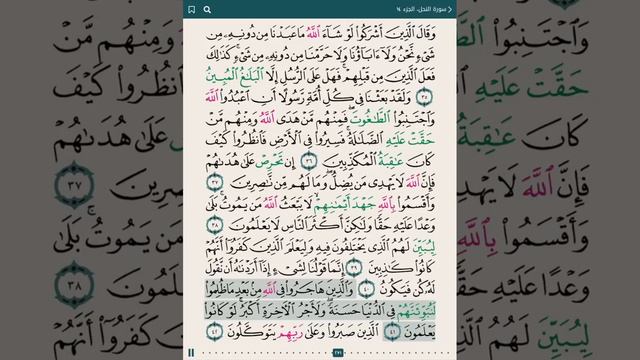 سورة النحل، الجزء ١٤
وَقَالَ الَّذِينَ أَشْرَكُوا لَوْ شَاءَ اللَّهُ مَا عَبَدْنَا مِن دُونِهِ مِن
شَيْءٍ نَّحْنُ وَلَا ءَابَاؤُنَا وَلَا حَرَّمْنَا مِن دُونِهِ مِن شَيْءٍ كَذَٰلِكَ
فَعَلَ الَّذِينَ مِن قَبْلِهِمْ فَهَلْ عَلَى الرُّسُلِ إِلَّا الْبَلَاغُ الْمُبِينُ
٣٥ وَلَقَدْ بَعَثْنَا فِي كُلِّ أُمَّةٍ رَّسُولًا أَنِ اعْبُدُوا اللَّهَ
وَاجْتَنِبُوا الطَّاغُوتَ فَمِنْهُم مَّنْ هَدَى اللَّهُ وَمِنْهُم مَّنْ
حَقَّتْ عَلَيْهِ الضَّلَالَةُ فَسِيرُوا فِي الْأَرْضِ فَانظُرُوا كَيْفَ
كَانَ عَاقِبَةُ الْمُكَذِّبِينَ ٣٦ إِن تَحْرِصْ عَلَىٰ هُدَاهُمْ
فَإِنَّ اللَّهَ لَا يَهْدِي مَن يُضِلُّ وَمَا لَهُم مِّن نَّاصِرِينَ ٣٧
وَأَقْسَمُوا بِاللَّهِ جَهْدَ أَيْمَانِهِمْ لَا يَبْعَثُ اللَّهُ مَن يَمُوتُ بَلَىٰ
وَعْدًا عَلَيْهِ حَقًّا وَلَٰكِنَّ أَكْثَرَ النَّاسِ لَا يَعْلَمُونَ ٣٨
لِيُبَيِّنَ لَهُمُ الَّذِي يَخْتَلِفُونَ فِيهِ وَلِيَعْلَمَ الَّذِينَ كَفَرُوا أَنَّهُمْ
كَانُوا كَاذِبِينَ ٣٩ إِنَّمَا قَوْلُنَا لِشَيْءٍ إِذَا أَرَدْنَاهُ أَن نَّقُولَ
لَهُ كُن فَيَكُونُ ٤٠ وَالَّذِينَ هَاجَرُوا فِي اللَّهِ مِن بَعْدِ مَا ظُلِمُوا
لَنُبَوِّئَنَّهُمْ فِي الدُّنْيَا حَسَنَةً وَلَأَجْرُ الْآخِرَةِ أَكْبَرُ لَوْ كَانُوا
يَعْلَمُونَ ٤١ الَّذِينَ صَبَرُوا وَعَلَىٰ رَبِّهِمْ يَتَوَكَّلُونَ ٤٢
٢٧١